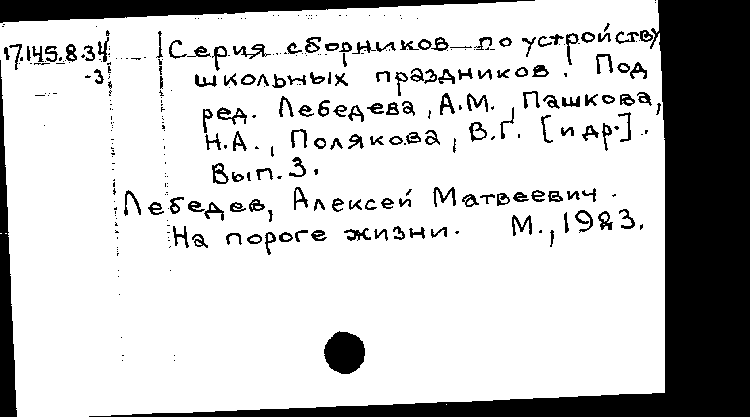 17.145.8.34
-3
Серия сборников по устройству
школьных праздников. Под
ред. Лебедева, А.М., Пашкова,
Н.А., Полякова, В.Г. [и др.].
Вып. 3.
Лебедев, Алексей Матвеевич.
На пороге жизни. М., 1923.